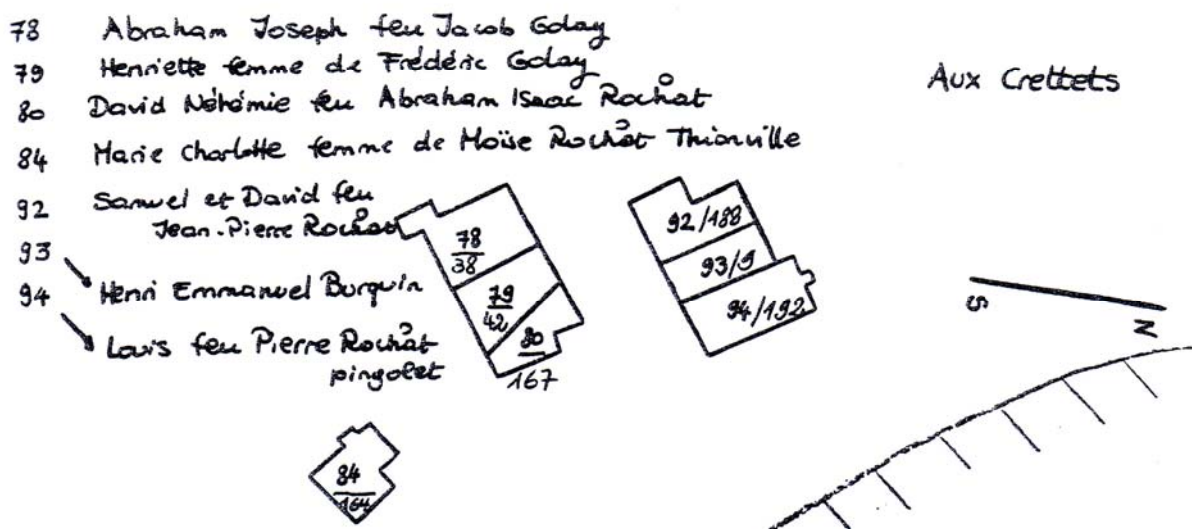 78 Abraham Joseph feu Jacob Golay
79 Henriette femme de Frédéric Golay
80 David Néhémie feu Abraham Isaac Rochat
84 Marie Charlotte femme de Moïse Rochat Thionville
92 Samuel et David feu
Jean-Pierre Rochat
93 Henri Emmanuel Burquin
94 Louis feu Pierre Rochat
pingolet
Aux Crettets
78
38
79
42
80
167
92/188
93/9
94/192
84
164
S
N